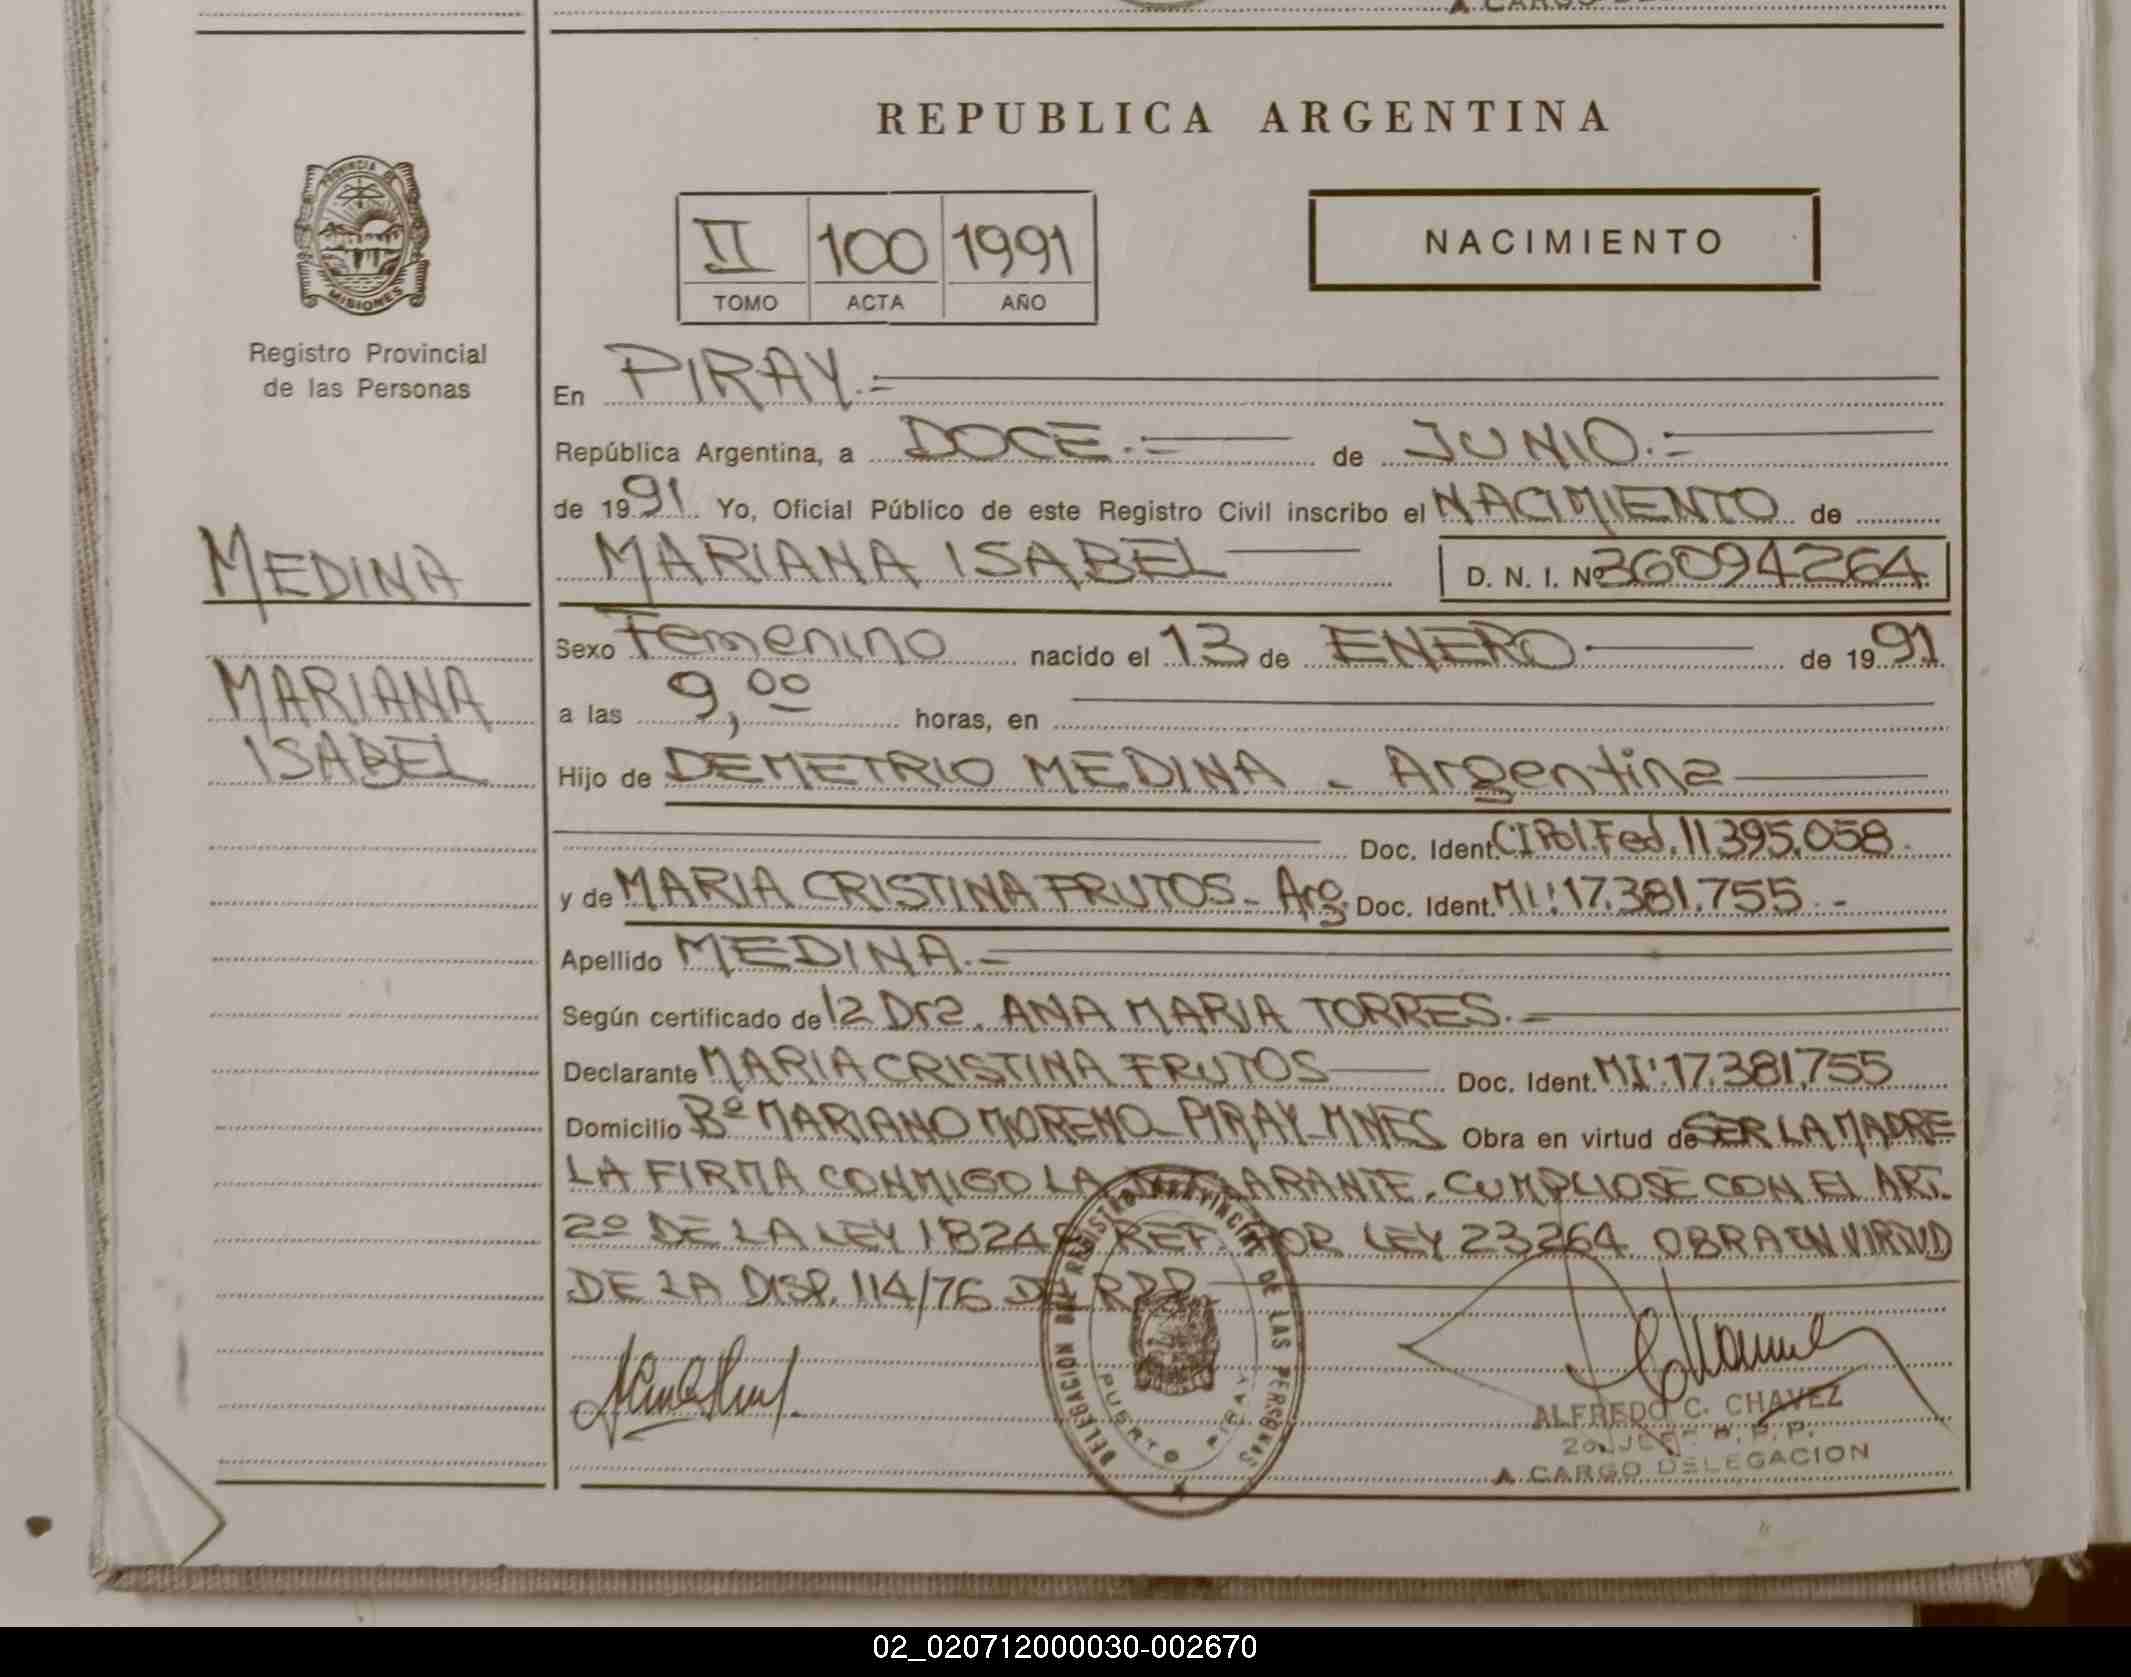 A CARGO
REPUBLICA ARGENTINA
PROVINCIA DE
MISIONES
Registro Provincial
de las Personas
II 100 1991
TOMO ACTA AÑO
NACIMIENTO
En PIRAY.=
República Argentina, a DOCE.= de JUNIO.=
de 1991 Yo, Oficial Público de este Registro Civil inscribo el NACIMIENTO de
MEDINA
MARIANA ISABEL D. N. I. Nº 36094264
MARIANA
ISABEL
Sexo Femenino nacido el 13 de ENERO de 1991
a las 9,00 horas, en
Hijo de DEMETRIO MEDINA - Argentina
Doc. Ident. CIPol.Fed. 11.395.058
y de MARIA CRISTINA FRUTOS - Arg. Doc. Ident. MI: 17.381.755.-
Apellido MEDINA.-
Según certificado de la Dra. ANA MARIA TORRES.-
Declarante MARIA CRISTINA FRUTOS Doc. Ident. MI: 17.381.755
Domicilio Bº MARIANO MORENO - PIRAY - MNES Obra en virtud de SER LA MADRE
LA FIRMA CONMIGO LA DECLARANTE. CUMPLIOSE CON EL ART.
2º DE LA LEY 18248 REF. POR LEY 23264 OBRA EN VIRTUD
DE LA DISP. 114/76 DEL RPP
DELEGACION DEL REGISTRO PROVINCIAL DE LAS PERSONAS
PUERTO PIRAY
ALFREDO C. CHAVEZ
2o. JEFE R. P. P.
A CARGO DELEGACION
02_020712000030-002670